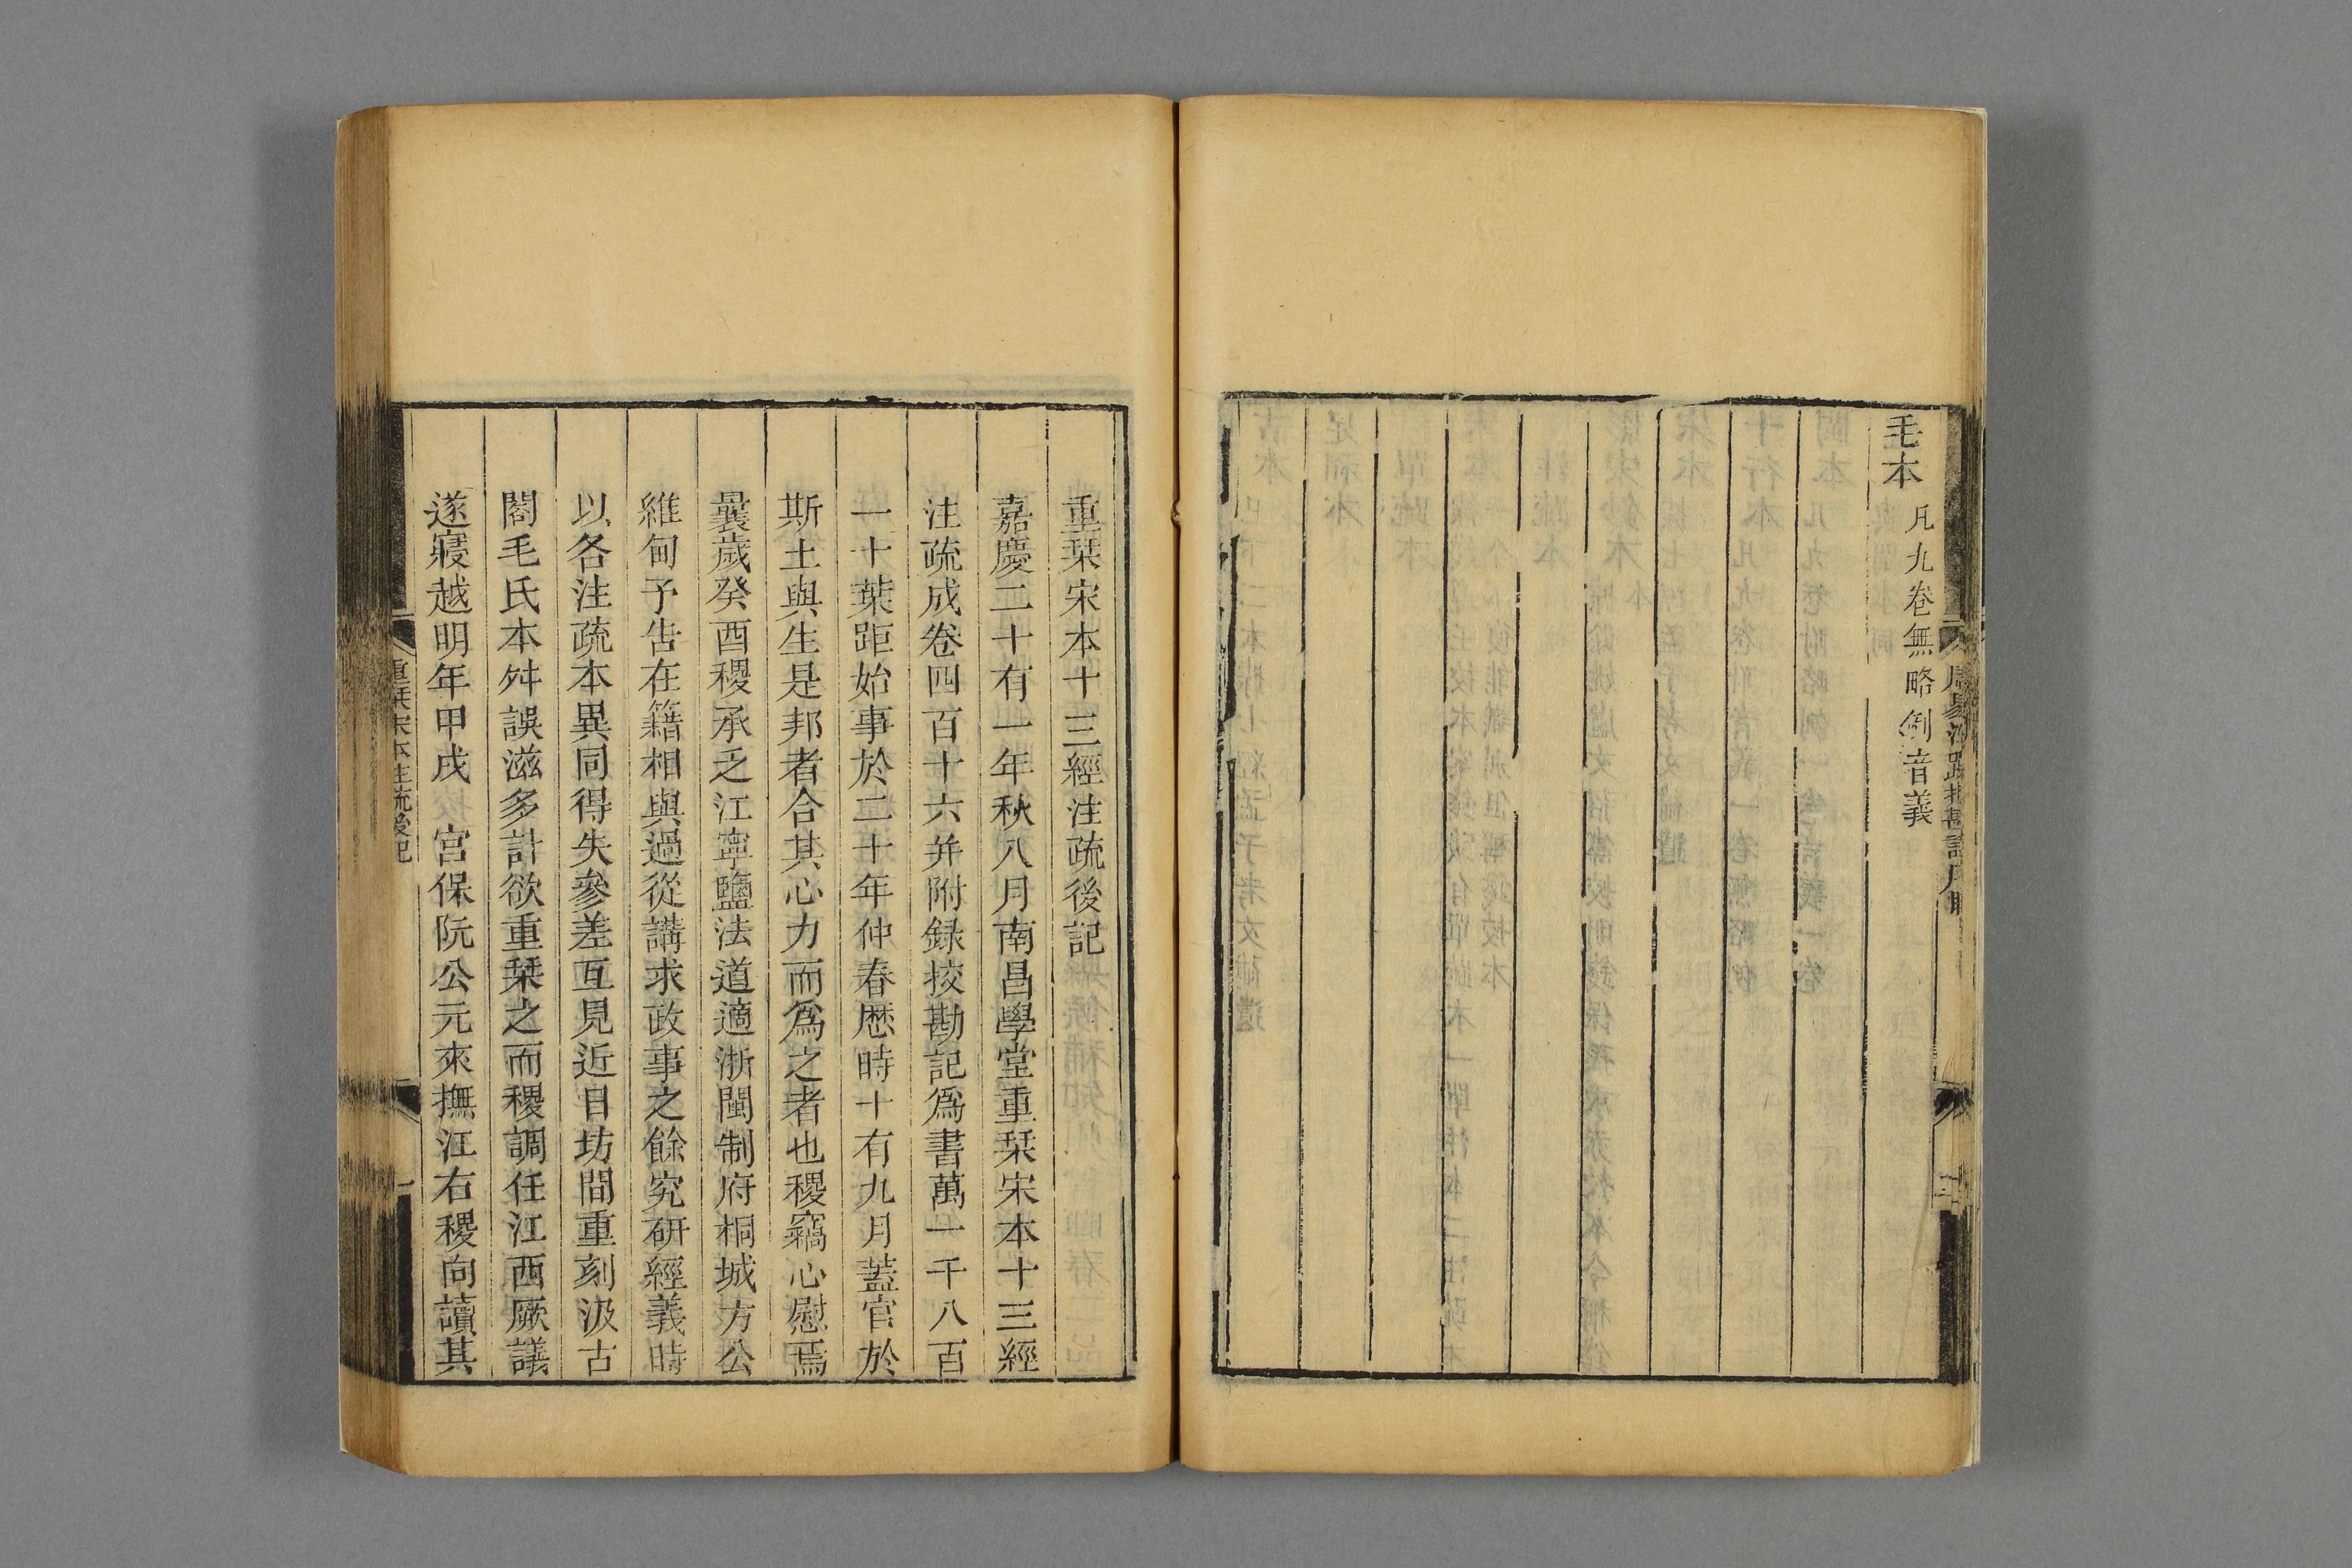 毛本 凡九卷無略例音義
重栞宋本十三經注疏後記
嘉慶二十有一年秋八月南昌學堂重栞宋本十三經
注疏成卷四百十六并附録挍勘記爲書萬一千八百
一十葉距始事於二十年仲春歷時十有九月蓋官於
斯土與生是邦者合其心力而爲之者也稷竊心慰焉
曩歲癸酉稷承乏江寧鹽法道適浙閩制府桐城方公
維甸予告在籍相與過從講求政事之餘究研經義時
以各注疏本異同得失參差互見近日坊間重刻汲古
閣毛氏本舛誤滋多計欲重栞之而稷調任江西厥議
遂寢越明年甲戌 宮保阮公元來撫江右稷向讀其
重栞宋本注疏後記